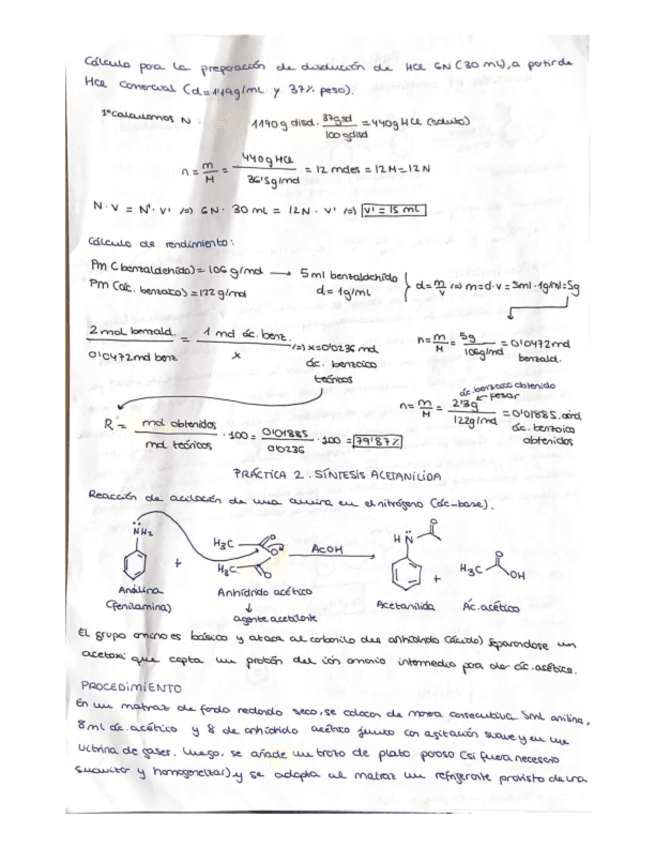 Cálculo para la preparación de disolución de HCl 6N (30 mL), a partir de
HCl comercial (d=1'19g/mL y 37% peso).
1º calculamos N: 1190 g disd. 37gsd/100gdisd = 440g HCl (soluto)
n = m/M = 440gHCl/36'5g/mol = 12 moles = 12M = 12N
N·V = N'·V' /=> 6N · 30 mL = 12N · V' /=> V' = 15 mL
Cálculo de rendimiento:
Pm (benzaldehído) = 106 g/mol → 5 ml benzaldehído
Pm (ác. benzoico) = 122 g/mol d = 1g/mL
d = m/v /=> m = d·v = 5ml·1g/ml = 5g
2 mol benzald./0'0472 mol benz. = 1 mol ác. benz./x /=> x = 0'0236 mol
ác. benzoico
teóricos
n = m/M = 5g/106g/mol = 0'0472 mol
benzald.
ác. benzoico obtenido
pesar
n = m/M = 2'3g/122g/mol = 0'01885 mol
ác. benzoico
obtenidos
R = mol obtenidos/mol teóricos · 100 = 0'01885/0'0236 · 100 = 79'87%
PRÁCTICA 2. SÍNTESIS ACETANILIDA
Reacción de acilación de una amina en el nitrógeno (ác-base).
NH2 + H3C O O H3C O AcOH HN O + H3C O OH
Anilina Anhídrido acético Acetanilida Ác. acético
(fenilamina) ↓
agente acetilante
El grupo amino es básico y ataca al carbonilo del anhídrido (ácido) separándose un
acetoxi que capta un protón del ión amonio intermedio para dar ác. acético.
PROCEDIMIENTO
En un matraz de fondo redondo seco, se colocan de manera consecutiva 5ml anilina,
8ml ác. acético y 8 de anhídrido acético junto con agitación suave y en una
vitrina de gases. Luego, se añade un trozo de plato poroso (si fuera necesario
suavizar y homogeneizar) y se adapta al matraz un refrigerante provisto de una